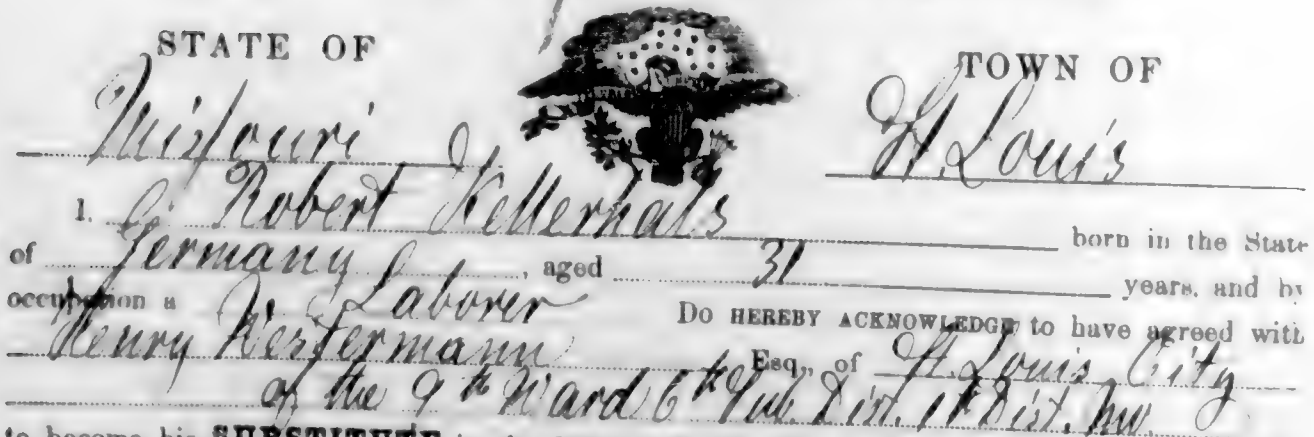 STATE OF
TOWN OF
Missouri
St Louis
I, Robert Kellerhals born in the State
of Germany, aged 31 years, and by
occupation a Laborer Do HEREBY ACKNOWLEDGE to have agreed with
Henry Westermann Esq., of St. Louis City
of the 9th Ward 6th Sub. Dist. 1st Dist. Mo.
to become his SUBSTITUTE